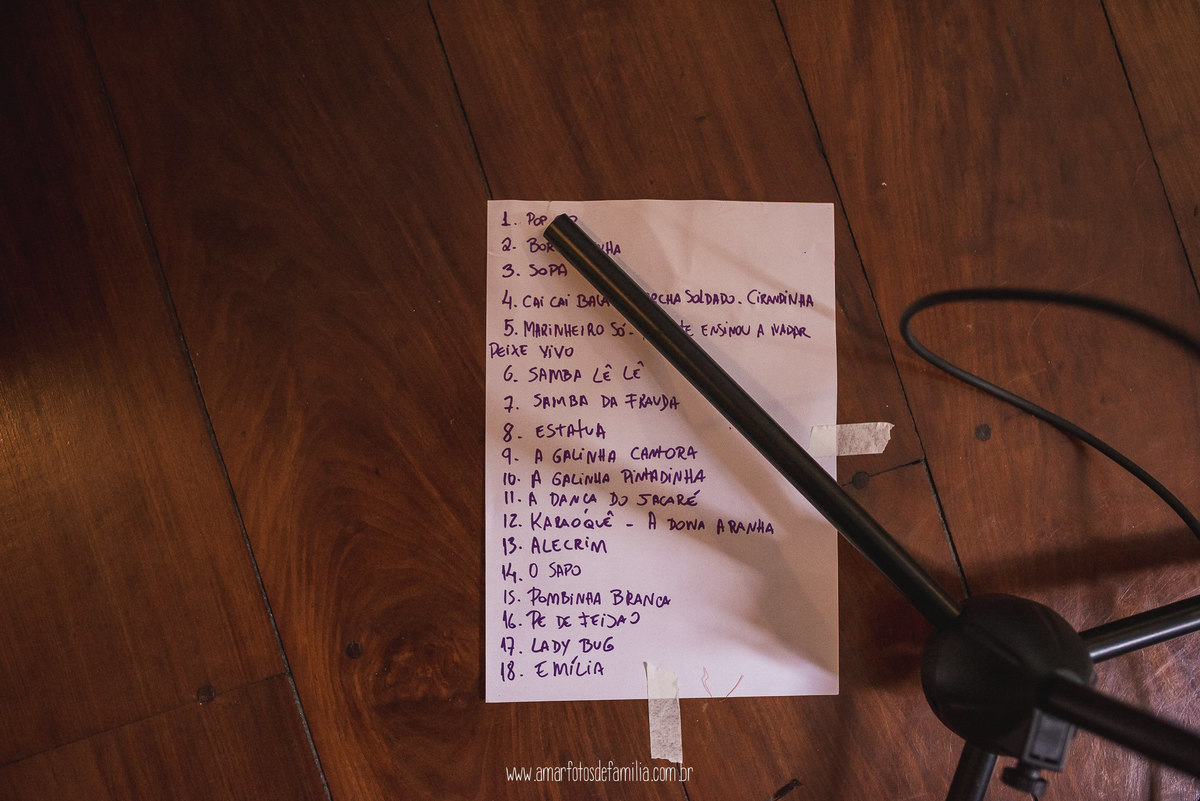 1. POP
2.
3. SOPA
4. CAI CAI SOLDADO. CIRANDINHA
5. MARINHEIRO SÓ - ENSINOU A NADAR
DEIXE VIVO
6. SAMBA LÊ LÊ
7. SAMBA DA FRAUDA
8. ESTATUA
9. A GALINHA CANTORA
10. A GALINHA PINTADINHA
11. A DANCA DO JACARÉ
12. KARAÓQUÊ - A DONA ARANHA
13. ALECRIM
14. O SAPO
15. POMBINHA BRANCA
16. PE DE FEIJAO
17. LADY BUG
18. EMÍLIA
www.amarfotosdefamilia.com.br